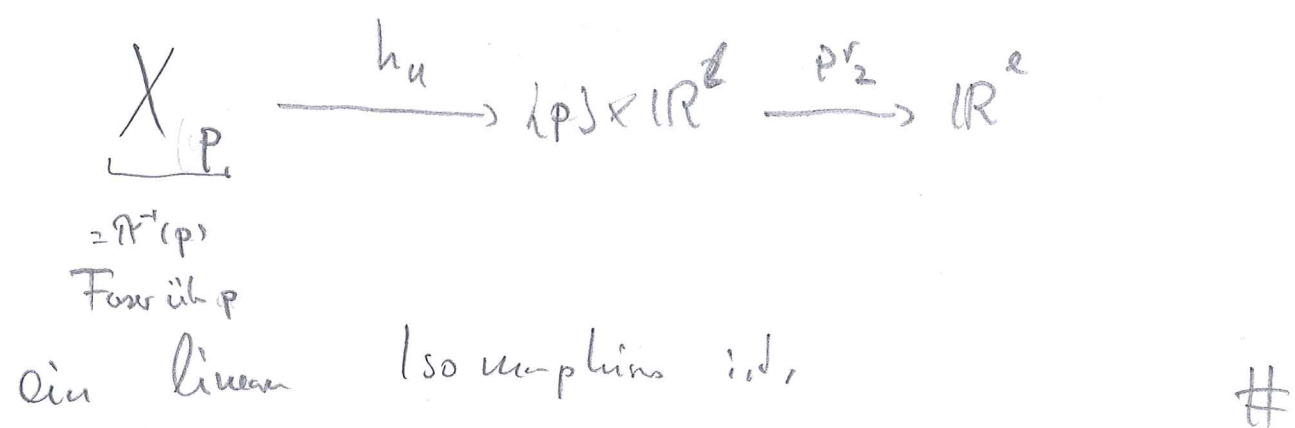 X_p \xrightarrow{h_u} {p} × ℝ^ℓ \xrightarrow{pr_2} ℝ^ℓ
= π^{-1}(p)
Faser üb p
ein linear Isomorphismus ist, #